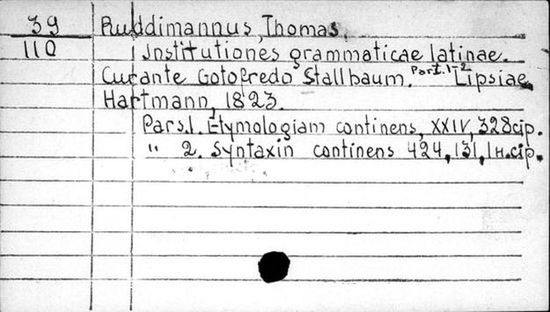 39 Ruddimannus, Thomas.
110 Institutiones grammaticae latinae.
Curante Gotofredo Stallbaum. Part. 1-2 Lipsiae,
Hartmann, 1823.
Pars. 1. Etymologiam continens, XXIV, 328 cip.
" 2. Syntaxin continens 424, 131, 1 н. cip.